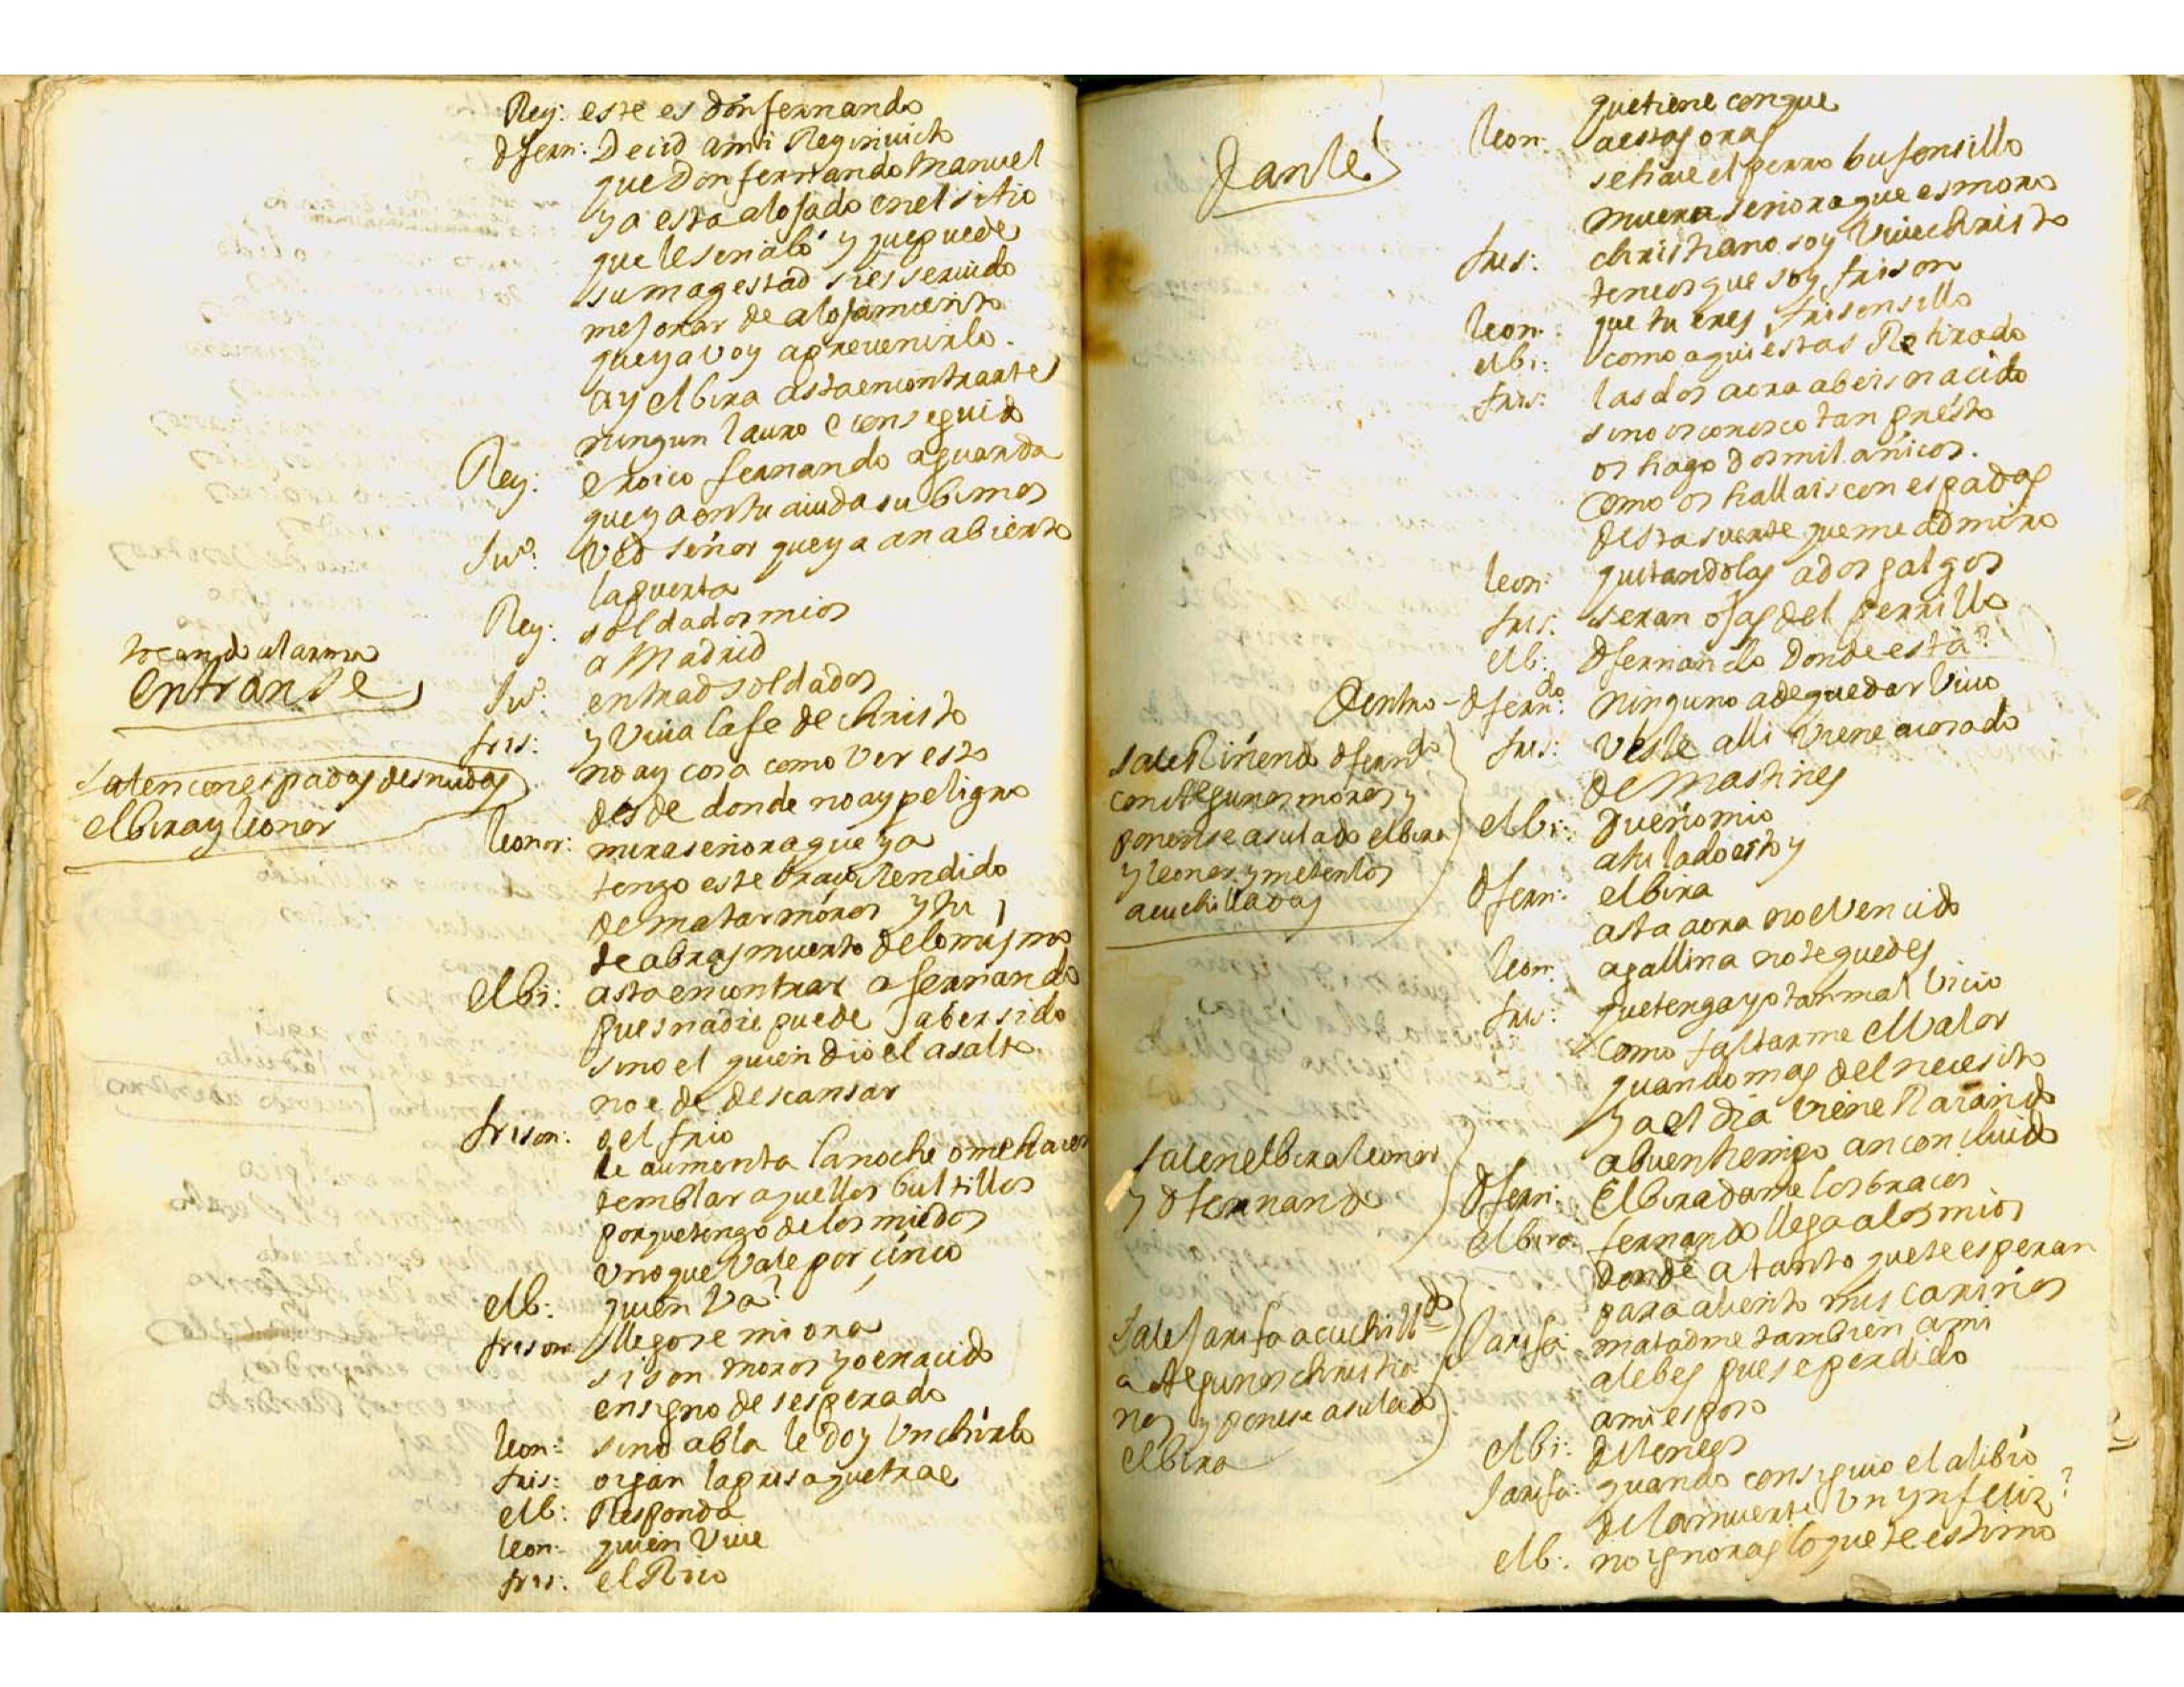 Rey: este es don fernando
dfern: Decid ami Rey invicto
que Don fernando Manuel
ya esta alojado en el sitio
que le señaló y que puede
su magestad si es seruido
mejorar de alojamiento
que ya voy a preuenirlo.
ay elbira asta encontrarte
ningun lauro e conseguido
Rey: eroico fernando aguarda
que ya en tu aiuda subimos
Ved señor que ya an abierto
la puerta
Rey: soldados mios
a Madrid
tocando al arma
entranse
entrad soldados
y Viua la fe de christo
fris: no ay cosa como ver esto
desde donde no ay peligro
salen con espadas desnudas
elbira y leonor
leonor: mira señora que ya
tengo este braço Rendido
de matar moros y tu
te abras muerto de lo mismo
elbi: asta encontrar a fernando
pues nadie puede aber sido
sino el quien dio el asalto
no e de descansar
frison: o el frio
le aumenta la noche o me hacen
temblar aquellos bultillos
porque tengo de los miedos
vno que vale por çinco
elb: quien Va?
frison: llegose mi ora
si son moros yo e nacido
en signo desesperado
leon: sino abla le doy Vn chirlo
fris: oigan la prisa que trae
elb: Responda
leon: quien Viue
fris: el Rrio
que tiene con que
Dante
leon: a estas oras
se hiçie el perro bufonsillo
muera señora que es moro
fris: christiano soy Viue christo
teneos que soy frison
leon: que tu eres frisonsillo
elbi: como aqui estas Retirado
fris: las dos aora abeis nacido
sino os conosco tan presto
os hago dos mil añicos.
como os hallais con espadas
desta suerte que me admiro
leon: quitandolas a dos galgos
fris: seran ojas del perrillo
elb: Dfernando Donde está?
Dentro - dferndo: ninguno a de quedar Viuo
fris: vesle alli viene acosado
de Mastines
sale Riñendo dferndo
con Algunos moros y
ponense a su lado elbira
y leonor y metenlos
a cuchilladas
elbi: Dueño mio
a tu lado estoy
dfern: elbira
asta aora no e Vencido
leon: a gallina no te quedes
fris: que tenga yo tan mal Vicio
como faltarme el Valor
quando mas del necesito
ya el dia viene Rayando
a buen tiempo an concluido
salen elbira leonor
y dfernando
dfern: Elbira dame los braços
elbira: fernando llega a los mios
donde a tanto que te esperan
para aliento mis cariños
sale Jarifa acuchilldo
a Algunos christia
nos y ponese a su lado
elbira
Jarifa: matadme tambien ami
alebes pues e perdido
ami esposo
elbi: deteneos
Jarifa: quando consiguio el alibio
de la muerte Vn ynfeliz?
elb: no ignoras lo que te estimo